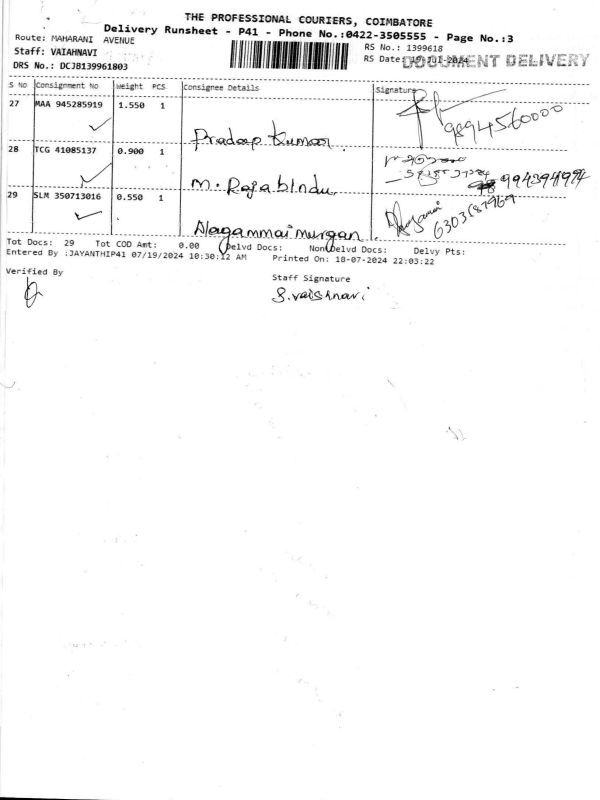 THE PROFESSIONAL COURIERS, COIMBATORE
Delivery Runsheet - P41 - Phone No.:0422-3505555 - Page No.:3
Route: MAHARANI AVENUE
RS No.: 1399618
Staff: VAIAHNAVI
RS Date: 19-Jul-2024
DOCUMENT DELIVERY
DRS No.: DCJB139961803
S No Consignment No Weight PCS Consignee Details Signature
27 MAA 945285919 1.550 1
Pradeep Kumar
9894560000
28 TCG 41085137 0.900 1
M. Rajabindu
29 SLM 350713016 0.550 1
Nagammai murgan.
Tot Docs: 29 Tot COD Amt: 0.00 Delvd Docs: Non Delvd Docs: Delvy Pts:
Entered By :JAYANTHIP41 07/19/2024 10:30:12 AM Printed On: 18-07-2024 22:03:22
Verified By
Staff Signature
S.vaishnavi